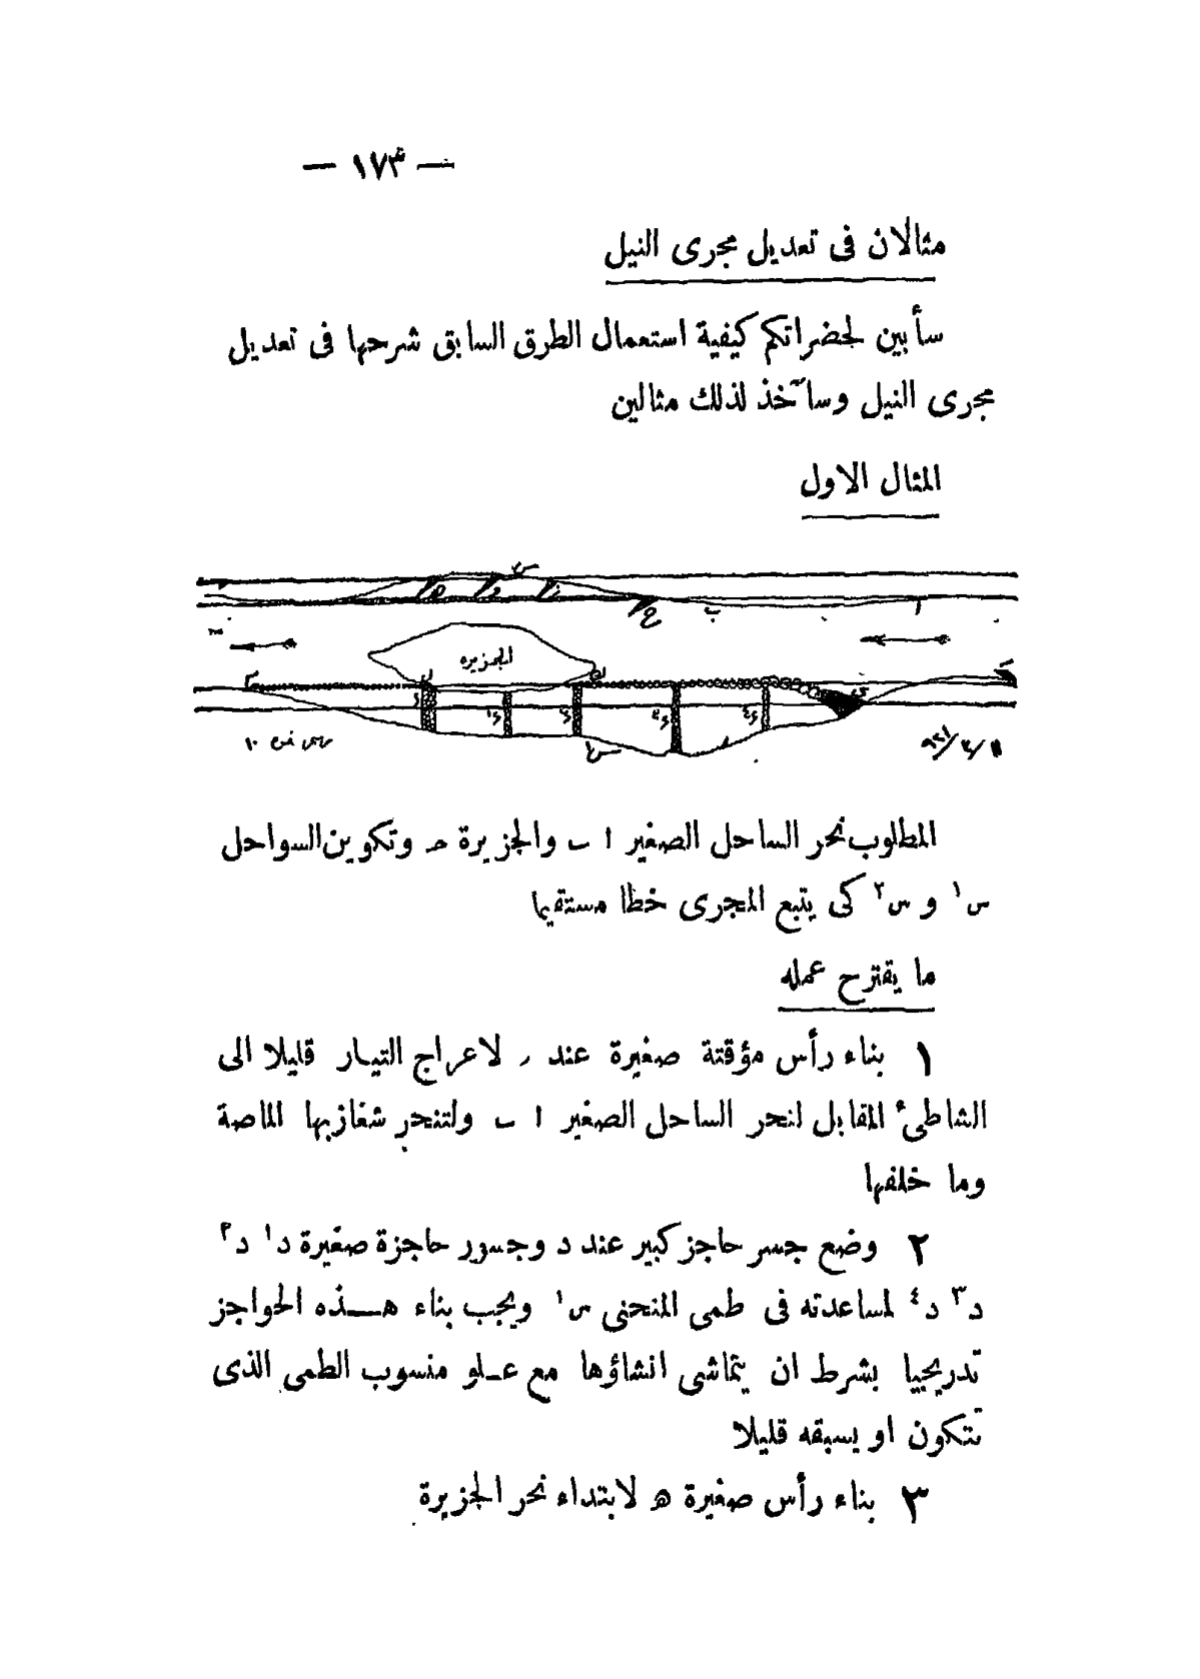 — ١٧٣ —
مثالان فى تعديل مجرى النيل
سأبين لحضراتكم كيفية استعمال الطرق السابق شرحها فى تعديل
مجرى النيل وسآخذ لذلك مثالين
المثال الاول
الجزيرة
المطلوب نحر الساحل الصغير ا ب والجزيرة حـ وتكوين السواحل
س١ و س٢ كى يتبع المجرى خطا مستقيما
ما يقترح عمله
١ بناء رأس مؤقتة صغيرة عند ر لاعراج التيار قليلا الى
الشاطئ المقابل لنحر الساحل الصغير ا ب ولتنحر شغازبها الماصة
وما خلفها
٢ وضع جسر حاجز كبير عند د وجسور حاجزة صغيرة د١ د٢
د٣ د٤ لمساعدته فى طمى المنحنى س١ ويجب بناء هــذه الحواجز
تدريجيا بشرط ان يتماشى انشاؤها مع عـلو منسوب الطمى الذى
تتكون او يسبقه قليلا
٣ بناء رأس صغيرة هـ لابتداء نحر الجزيرة